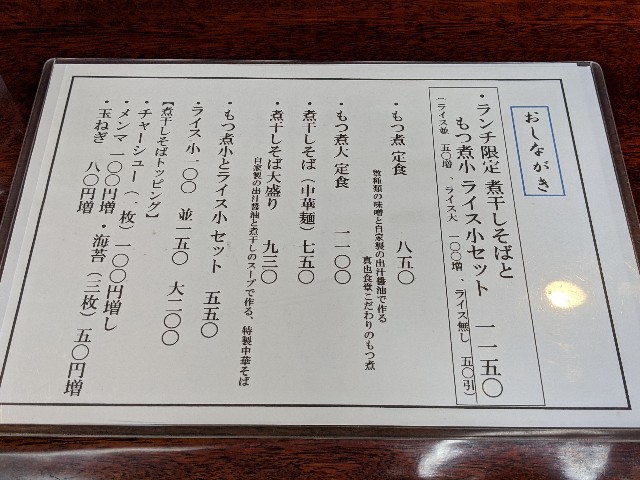 おしながき
・ランチ限定 煮干しそばと
もつ煮小 ライス小セット 一一五〇
(ライス並 五〇増 、ライス大 一〇〇増 、ライス無し 五〇引)
・もつ煮 定食 八五〇
数種類の味噌と自家製の出汁醤油で作る
真也食堂こだわりのもつ煮
・もつ煮大 定食 一一〇〇
・煮干しそば (中華麺) 七五〇
煮干しそば大盛り 九三〇
自家製の出汁醤油と煮干しのスープで作る、特製中華そば
・もつ煮小とライス小 セット 五五〇
ライス 小一〇〇 並一五〇 大二〇〇
【煮干しそばトッピング】
・チャーシュー(一枚) 一〇〇円増し
・メンマ 一〇〇円増 ・海苔(三枚) 五〇円増
・玉ねぎ 八〇円増